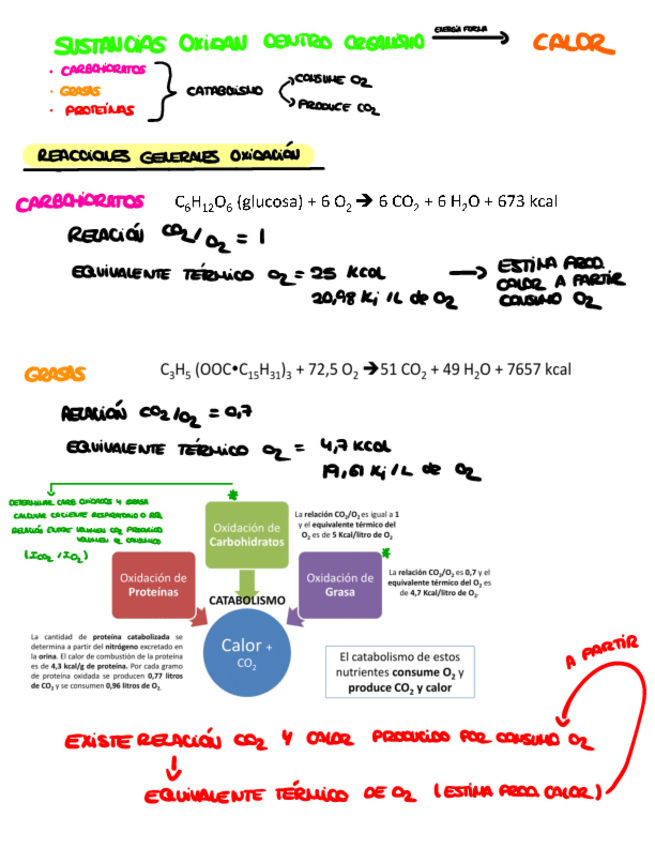 SUSTANCIAS OXIDAN DENTRO ORGANISMO ENERGÍA FORMA → CALOR
· CARBOHIDRATOS
· GRASAS
· PROTEÍNAS
CATABOLISMO
CONSUME O2
PRODUCE CO2
REACCIONES GENERALES OXIDACIÓN
CARBOHIDRATOS C6H12O6 (glucosa) + 6 O2 → 6 CO2 + 6 H2O + 673 kcal
RELACIÓN CO2/O2 = 1
EQUIVALENTE TÉRMICO O2 = 25 KCAL → ESTIMA PROD.
20,98 Kj /L de O2 CALOR A PARTIR
CONSUMO O2
GRASAS C3H5 (OOC•C15H31)3 + 72,5 O2 → 51 CO2 + 49 H2O + 7657 kcal
RELACIÓN CO2/O2 = 0,7
EQUIVALENTE TÉRMICO O2 = 4,7 KCAL
19,61 Kj/L de O2
DETERMINAR CARB OXIDADOS Y GRASA
CALCULAR COCIENTE RESPIRATORIO O
RELACIÓN ENTRE VOLUMEN CO2 PRODUCIDO
VOLUMEN O2 CONSUMIDO
(ICO2 / IO2)
*
Oxidación de
Carbohidratos
La relación CO2/O2 es igual a 1
y el equivalente térmico del
O2 es de 5 Kcal/litro de O2
*
Oxidación de
Proteínas
CATABOLISMO
Oxidación de
Grasa
La relación CO2/O2 es 0,7 y el
equivalente térmico del O2 es
de 4,7 Kcal/litro de O2.
La cantidad de proteína catabolizada se
determina a partir del nitrógeno excretado en
la orina. El calor de combustión de la proteína
es de 4,3 kcal/g de proteína. Por cada gramo
de proteína oxidada se producen 0,77 litros
de CO2 y se consumen 0,96 litros de O2.
Calor +
CO2
El catabolismo de estos
nutrientes consume O2 y
produce CO2 y calor
A PARTIR
EXISTE RELACIÓN CO2 Y CALOR PRODUCIDO POR CONSUMO O2
EQUIVALENTE TÉRMICO DE O2 (ESTIMA PROD. CALOR)